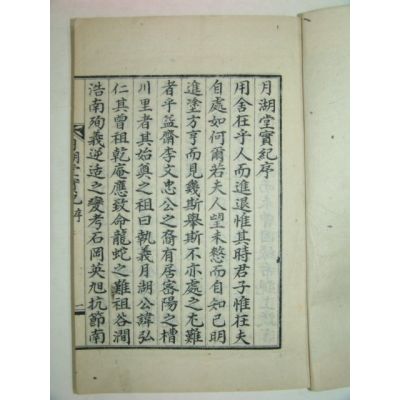 月湖堂實紀序
用舍在乎人而進退惟其時君子惟在夫
自處如何爾若夫人望未愸而自知已明
進塗方亨而見幾斯擧斯不亦處之尤難
者乎益齋李文忠公之裔有居密陽之槽
川里者其始奠之祖曰執義月湖公諱弘
仁其曾祖乾庵應致命龍蛇之難祖谷澗
浩南殉義逆造之變考石岡英旭抗節南
月湖堂實紀 序 一